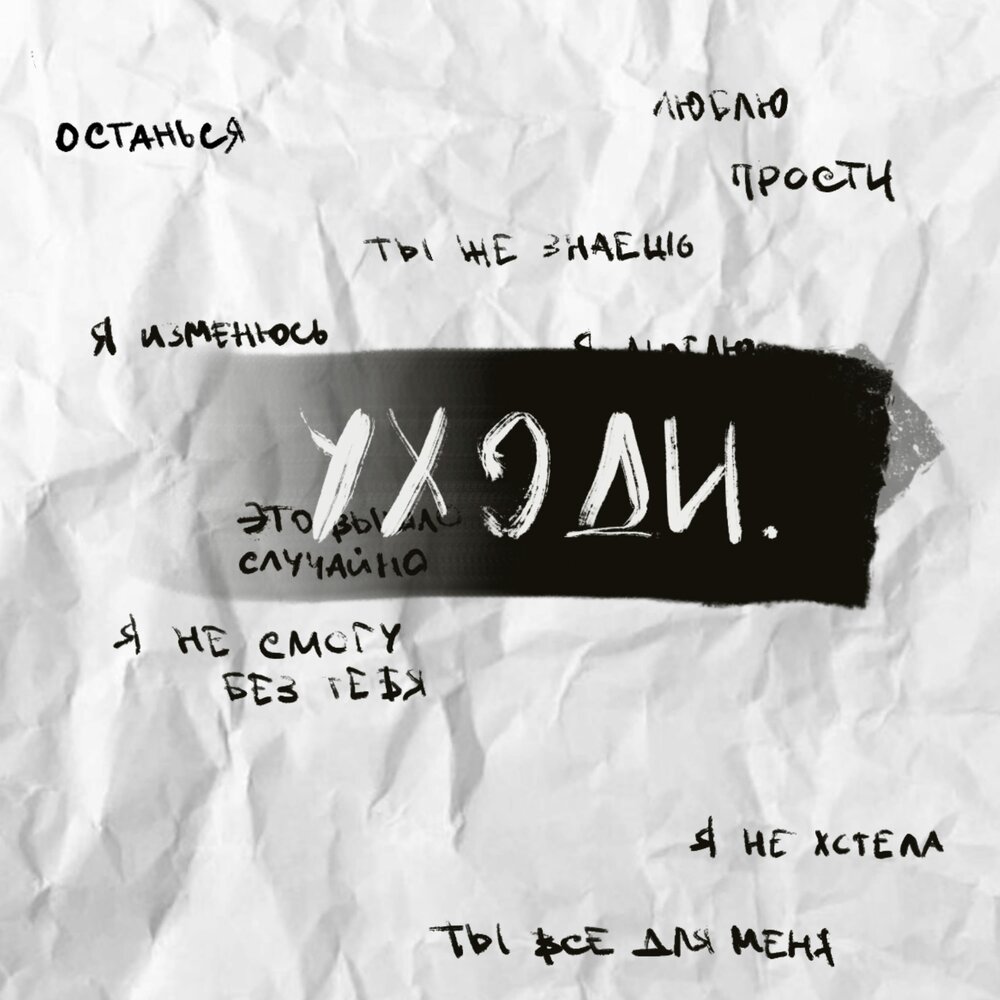 ЛЮБЛЮ
ОСТАНЬСЯ
ПРОСТИ
ТЫ ЖЕ ЗНАЕШЬ
Я ИЗМЕНЮСЬ
Я ЛЮБЛЮ
УХОДИ.
ЭТО БЫЛО
СЛУЧАЙНО
Я НЕ СМОГУ
БЕЗ ТЕБЯ
Я НЕ ХОТЕЛА
ТЫ ВСЕ ДЛЯ МЕНЯ